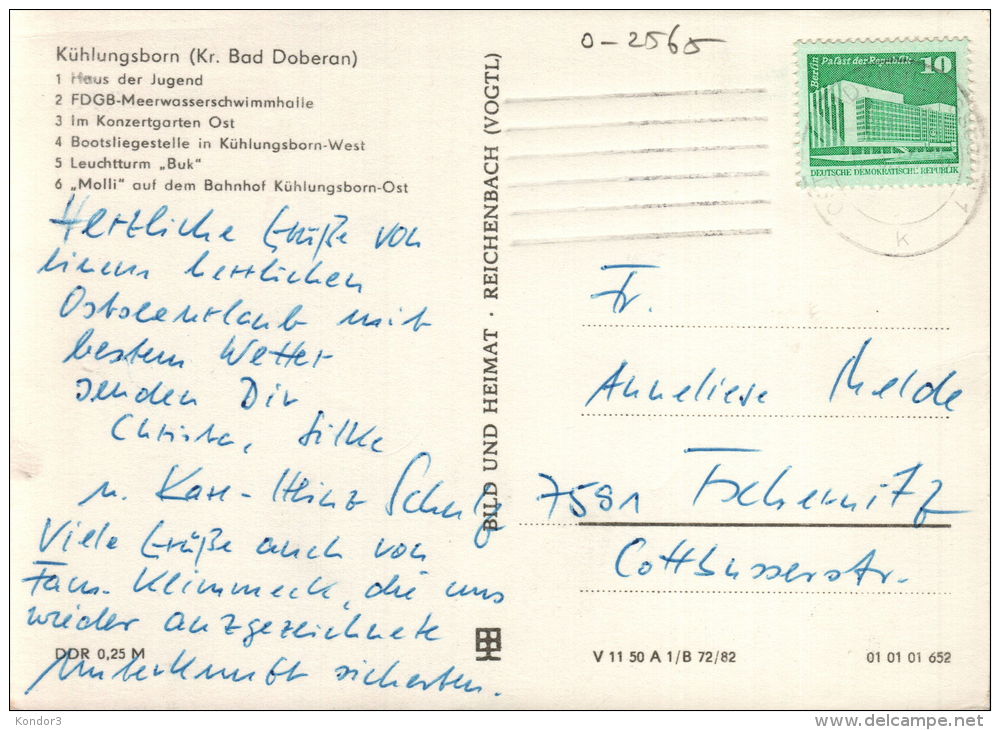 Kühlungsborn (Kr. Bad Doberan)
1 Haus der Jugend
2 FDGB-Meerwasserschwimmhalle
3 Im Konzertgarten Ost
4 Bootsliegestelle in Kühlungsborn-West
5 Leuchtturm „Buk"
6 „Molli" auf dem Bahnhof Kühlungsborn-Ost
Herzliche Grüße von
einem herrlichen
Ostseeurlaub mit
bestem Wetter
senden Dir
Christa, Silke
u. Karl-Heinz Schulz
Viele Grüße auch von
Fam. Klimmeck, die uns
wieder ausgezeichnete
Unterkunft sicherten.
DDR 0,25 M
BILD UND HEIMAT · REICHENBACH (VOGTL)
0-2565
Berlin Palast der Republik 10
DEUTSCHE DEMOKRATISCHE REPUBLIK
k
Fr.
Anneliese Melde
7591 Tschernitz
Cottbusserstr.
V 11 50 A 1/B 72/82
01 01 01 652
Kondor3
www.delcampe.net